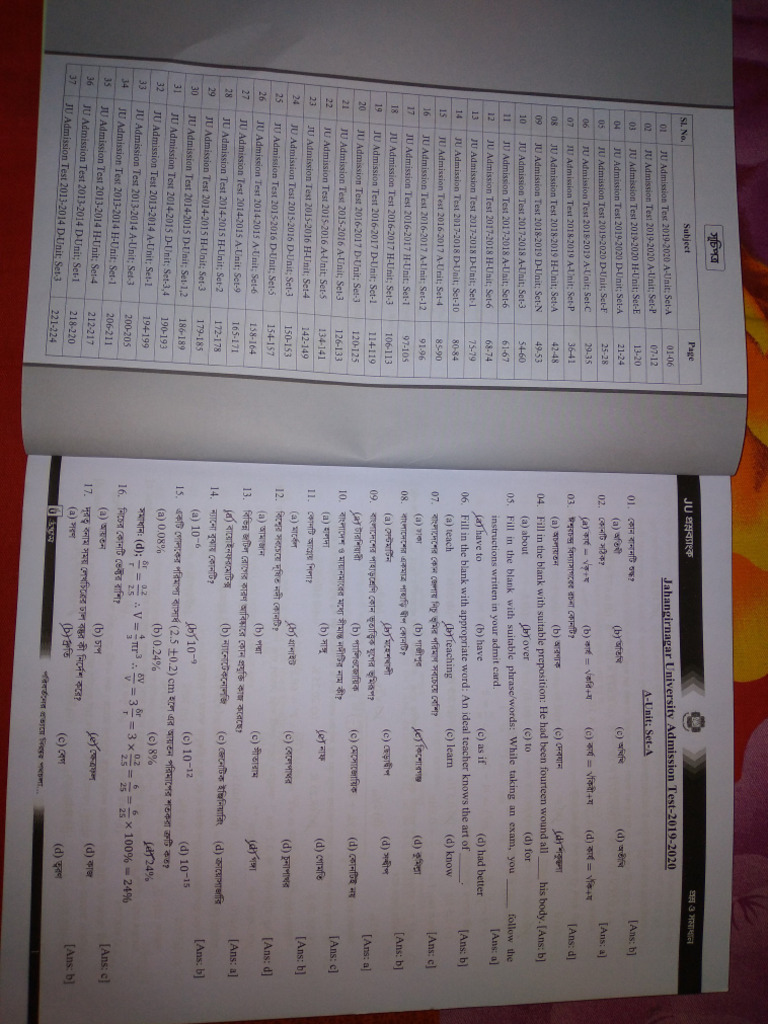 সূচিপত্র
Sl. No. Subject Page
01 JU Admission Test 2019-2020 A-Unit; Set-A 01-06
02 JU Admission Test 2019-2020 A-Unit; Set-P 07-12
03 JU Admission Test 2019-2020 H-Unit; Set-E 13-20
04 JU Admission Test 2019-2020 D-Unit; Set-A 21-24
05 JU Admission Test 2019-2020 D-Unit; Set-F 25-28
06 JU Admission Test 2018-2019 A-Unit; Set-C 29-35
07 JU Admission Test 2018-2019 A-Unit; Set-P 36-41
08 JU Admission Test 2018-2019 H-Unit; Set-A 42-48
09 JU Admission Test 2018-2019 D-Unit; Set-N 49-53
10 JU Admission Test 2017-2018 A-Unit; Set-3 54-60
11 JU Admission Test 2017-2018 A-Unit; Set-6 61-67
12 JU Admission Test 2017-2018 H-Unit; Set-6 68-74
13 JU Admission Test 2017-2018 D-Unit; Set-1 75-79
14 JU Admission Test 2017-2018 D-Unit; Set-10 80-84
15 JU Admission Test 2016-2017 A-Unit; Set-4 85-90
16 JU Admission Test 2016-2017 A-Unit; Set-12 91-96
17 JU Admission Test 2016-2017 H-Unit; Set-1 97-105
18 JU Admission Test 2016-2017 H-Unit; Set-3 106-113
19 JU Admission Test 2016-2017 D-Unit; Set-1 114-119
20 JU Admission Test 2016-2017 D-Unit; Set-3 120-125
21 JU Admission Test 2015-2016 A-Unit; Set-3 126-133
22 JU Admission Test 2015-2016 A-Unit; Set-5 134-141
23 JU Admission Test 2015-2016 H-Unit; Set-4 142-149
24 JU Admission Test 2015-2016 D-Unit; Set-3 150-153
25 JU Admission Test 2015-2016 D-Unit; Set-5 154-157
26 JU Admission Test 2014-2015 A-Unit; Set-6 158-164
27 JU Admission Test 2014-2015 A-Unit; Set-9 165-171
28 JU Admission Test 2014-2015 H-Unit; Set-2 172-178
29 JU Admission Test 2014-2015 H-Unit; Set-3 179-185
30 JU Admission Test 2014-2015 D-Unit; Set-1,2 186-189
31 JU Admission Test 2014-2015 D-Unit; Set-3,4 190-193
32 JU Admission Test 2013-2014 A-Unit; Set-1 194-199
33 JU Admission Test 2013-2014 A-Unit; Set-3 200-205
34 JU Admission Test 2013-2014 H-Unit; Set-1 206-211
35 JU Admission Test 2013-2014 H-Unit; Set-4 212-217
36 JU Admission Test 2013-2014 D-Unit; Set-1 218-220
37 JU Admission Test 2013-2014 D-Unit; Set-3 221-224
JU প্রশ্নব্যাংক প্রশ্ন ও সমাধান
Jahangirnagar University Admission Test-2019-2020
A-Unit; Set-A
01. কোন বানানটি শুদ্ধ?
(b) অতিথি [Ans: b]
02. কোনটি সঠিক?
(a) কার্য = √কৃ+য [Ans: a]
03. ঈশ্বরচন্দ্র বিদ্যাসাগরের রচনা কোনটি?
(d) শকুন্তলা [Ans: d]
04. Fill in the blank with suitable preposition: He had been fourteen wound all ____ his body. [Ans: b]
(a) about (b) over (c) to (d) for
05. Fill in the blank with suitable phrase/words: While taking an exam, you ____ follow the
instructions written in your admit card. [Ans: a]
(a) have to (b) have (c) as if (d) had better
06. Fill in the blank with appropriate word: An ideal teacher knows the art of ____.
(a) teach (b) teaching (c) learn (d) know [Ans: b]
07. বাংলাদেশের কোন জেলায় নিচু ভূমির পরিমাণ সবচেয়ে বেশি?
(a) ঢাকা (b) গাজীপুর (c) কিশোরগঞ্জ (d) কুমিল্লা [Ans: c]
08. বাংলাদেশের একমাত্র পাহাড়ি দ্বীপ কোনটি?
(a) সেন্টমার্টিন (b) মহেশখালী (c) ছেঁড়াদ্বীপ (d) সন্দ্বীপ [Ans: b]
09. বাংলাদেশের পাহাড়শ্রেণি কোন ভূতাত্ত্বিক যুগের ভূমিরূপ?
(a) টারশিয়ারী (b) প্যালিওজোয়িক (c) মেসোজোয়িক (d) কোনটিই নয় [Ans: a]
10. বাংলাদেশ ও মায়ানমারের মধ্যে সীমান্ত নদীটির নাম কী?
(a) হালদা (b) সাঙ্গু (c) নাফ (d) গোমতি [Ans: c]
11. কোনটি আগ্নেয় শিলা?
(a) মার্বেল (b) গ্রানাইট (c) বেলেপাথর (d) চুনাপাথর [Ans: b]
12. বিশ্বের সবচেয়ে দূষিত নদী কোনটি?
(a) আমাজান (b) পদ্মা (c) পীতারাম (d) গঙ্গা [Ans: d]
13. বিভিন্ন জটিল রোগের কারণ আবিষ্কারে কোন প্রযুক্তি কাজ করেছে?
(a) বায়োইনফরমেটিক্স (b) ন্যানোটেকনোলজি (c) জেনেটিক ইঞ্জিনিয়ারিং (d) ক্রায়োসার্জারি [Ans: a]
14. ন্যানো বুঝায় কোনটি?
(a) 10⁻⁶ (b) 10⁻⁹ (c) 10⁻¹² (d) 10⁻¹⁵ [Ans: b]
15. একটি গোলকের পরিমাপ্য ব্যাসার্ধ (2.5 ±0.2) cm হলে এর আয়তন পরিমাপের শতকরা ত্রুটি কত?
(a) 0.08% (b) 0.24% (c) 8% (d) 24%
সমাধান: (d); δr/r = 0.2/2.5 ∴ V = 4/3 πr³ ∴ δV/V = 3 δr/r = 3 × 0.2/2.5 = 6/25 = 6/25 × 100% = 24%
16. নিচের কোনটি ভেক্টর রাশি?
(a) আয়তন (b) চাপ (c) ক্ষেত্রফল (d) কাজ [Ans: c]
17. দূরত্ব বনাম সময় লেখচিত্রের ঢাল বস্তুর কী নির্দেশ করে?
(a) সরণ (b) দ্রুতি (c) বেগ (d) ত্বরণ [Ans: b]
উদ্ভাস পরিবর্তনের প্রত্যয়ে নিরন্তর পথচলা...